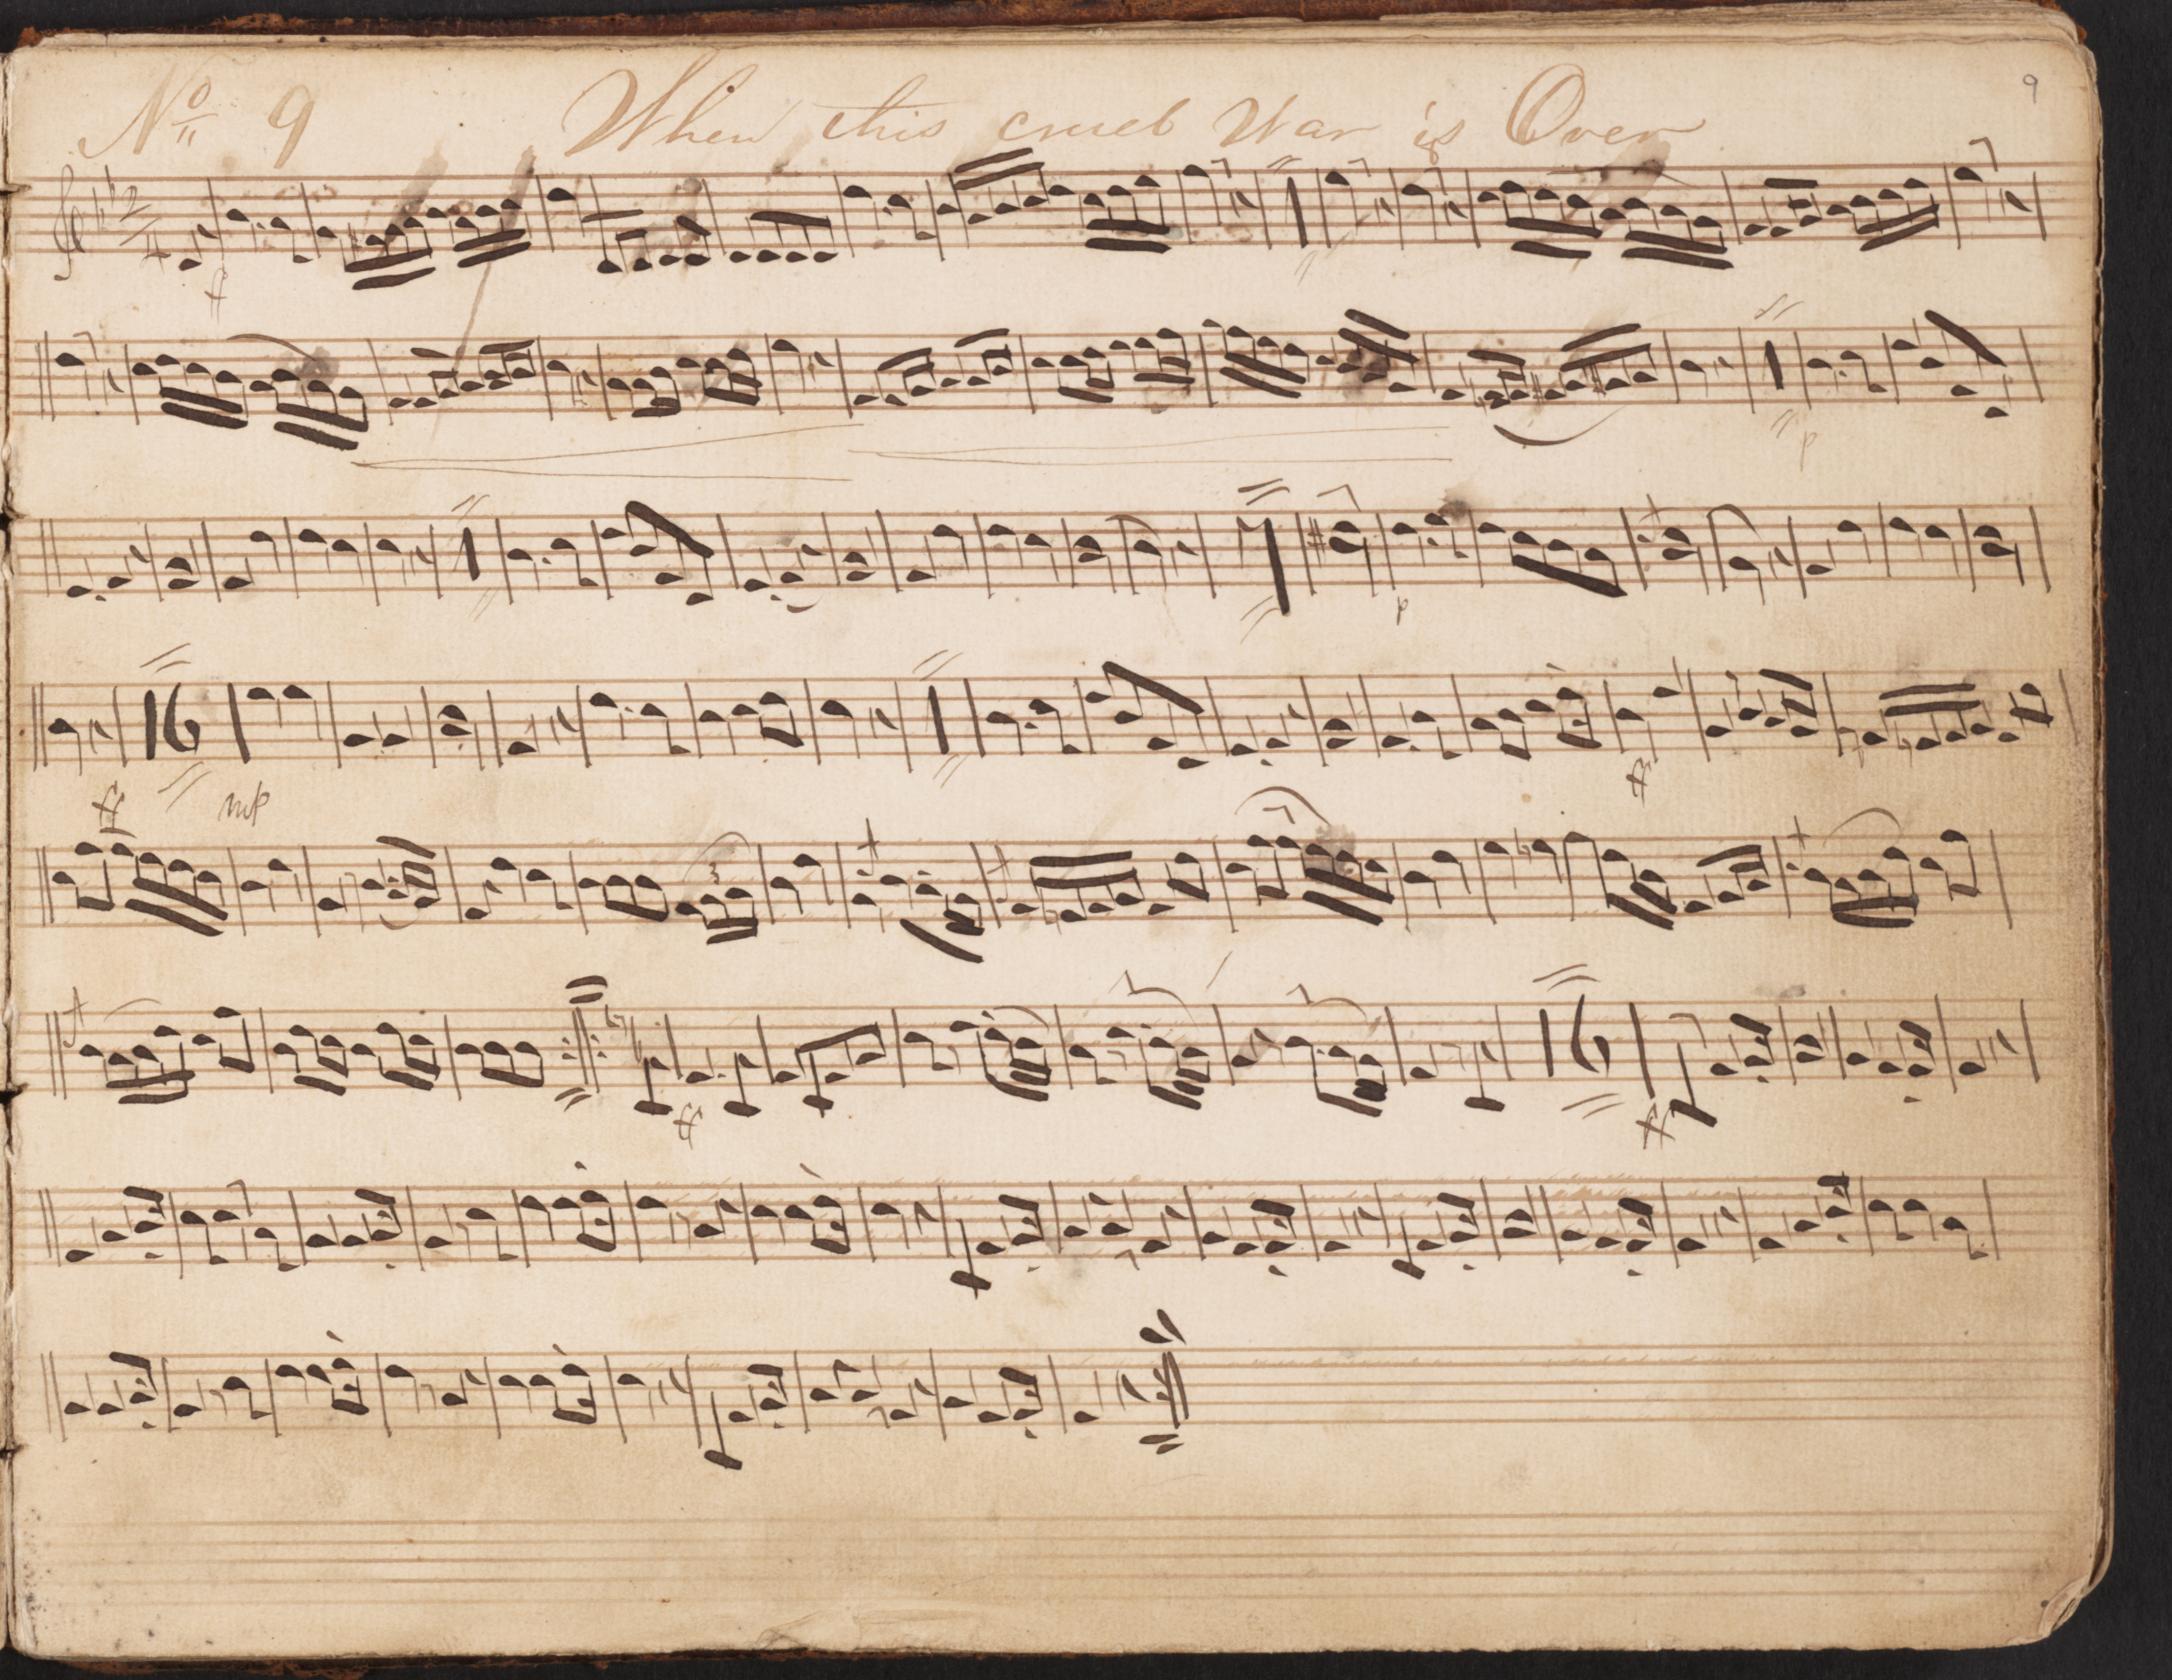 9
No 9 When this cruel War is Over
2
4
f
p
p
16
ff mp ff
3
16
ff ff